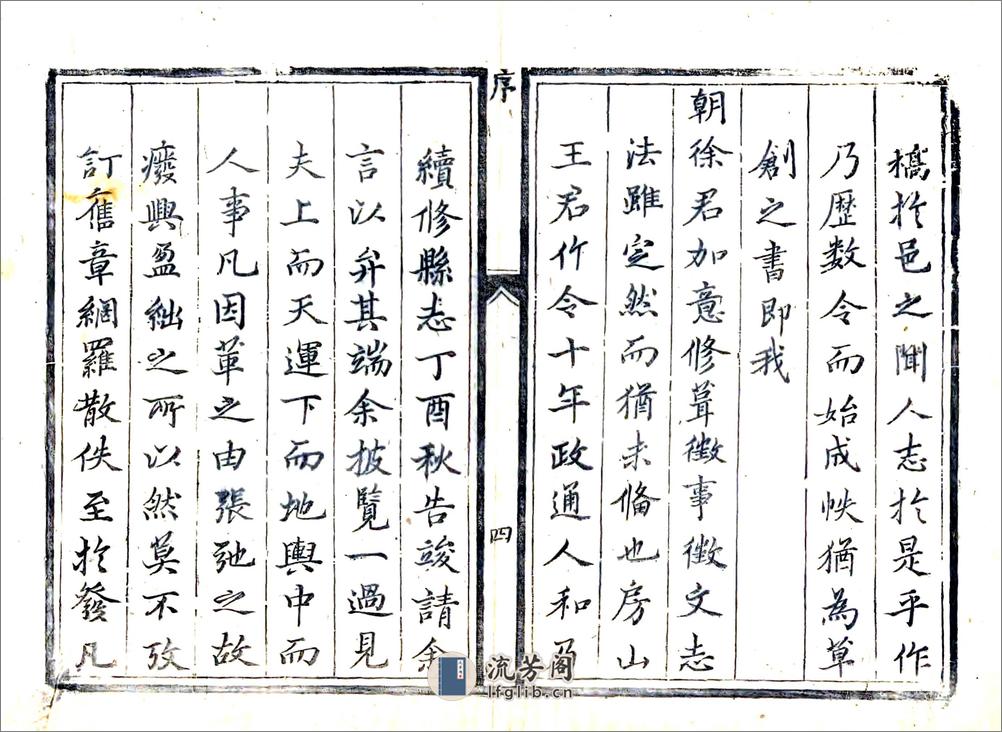 檇於邑之聞人志於是乎作
乃歷数令而始成帙猶為草
創之書即我
朝徐君加意修葺徵事徵文志
法雖定然而猶未俻也房山
王君作令十年政通人和乃
序
四
續修縣志丁酉秋告竣請余
言以弁其端余披覽一過見
夫上而天運下而地輿中而
人事凡因革之由張弛之故
癈興盈絀之所以然莫不攷
訂舊章網羅散佚至於發凡
流芳阁
lfglib.cn